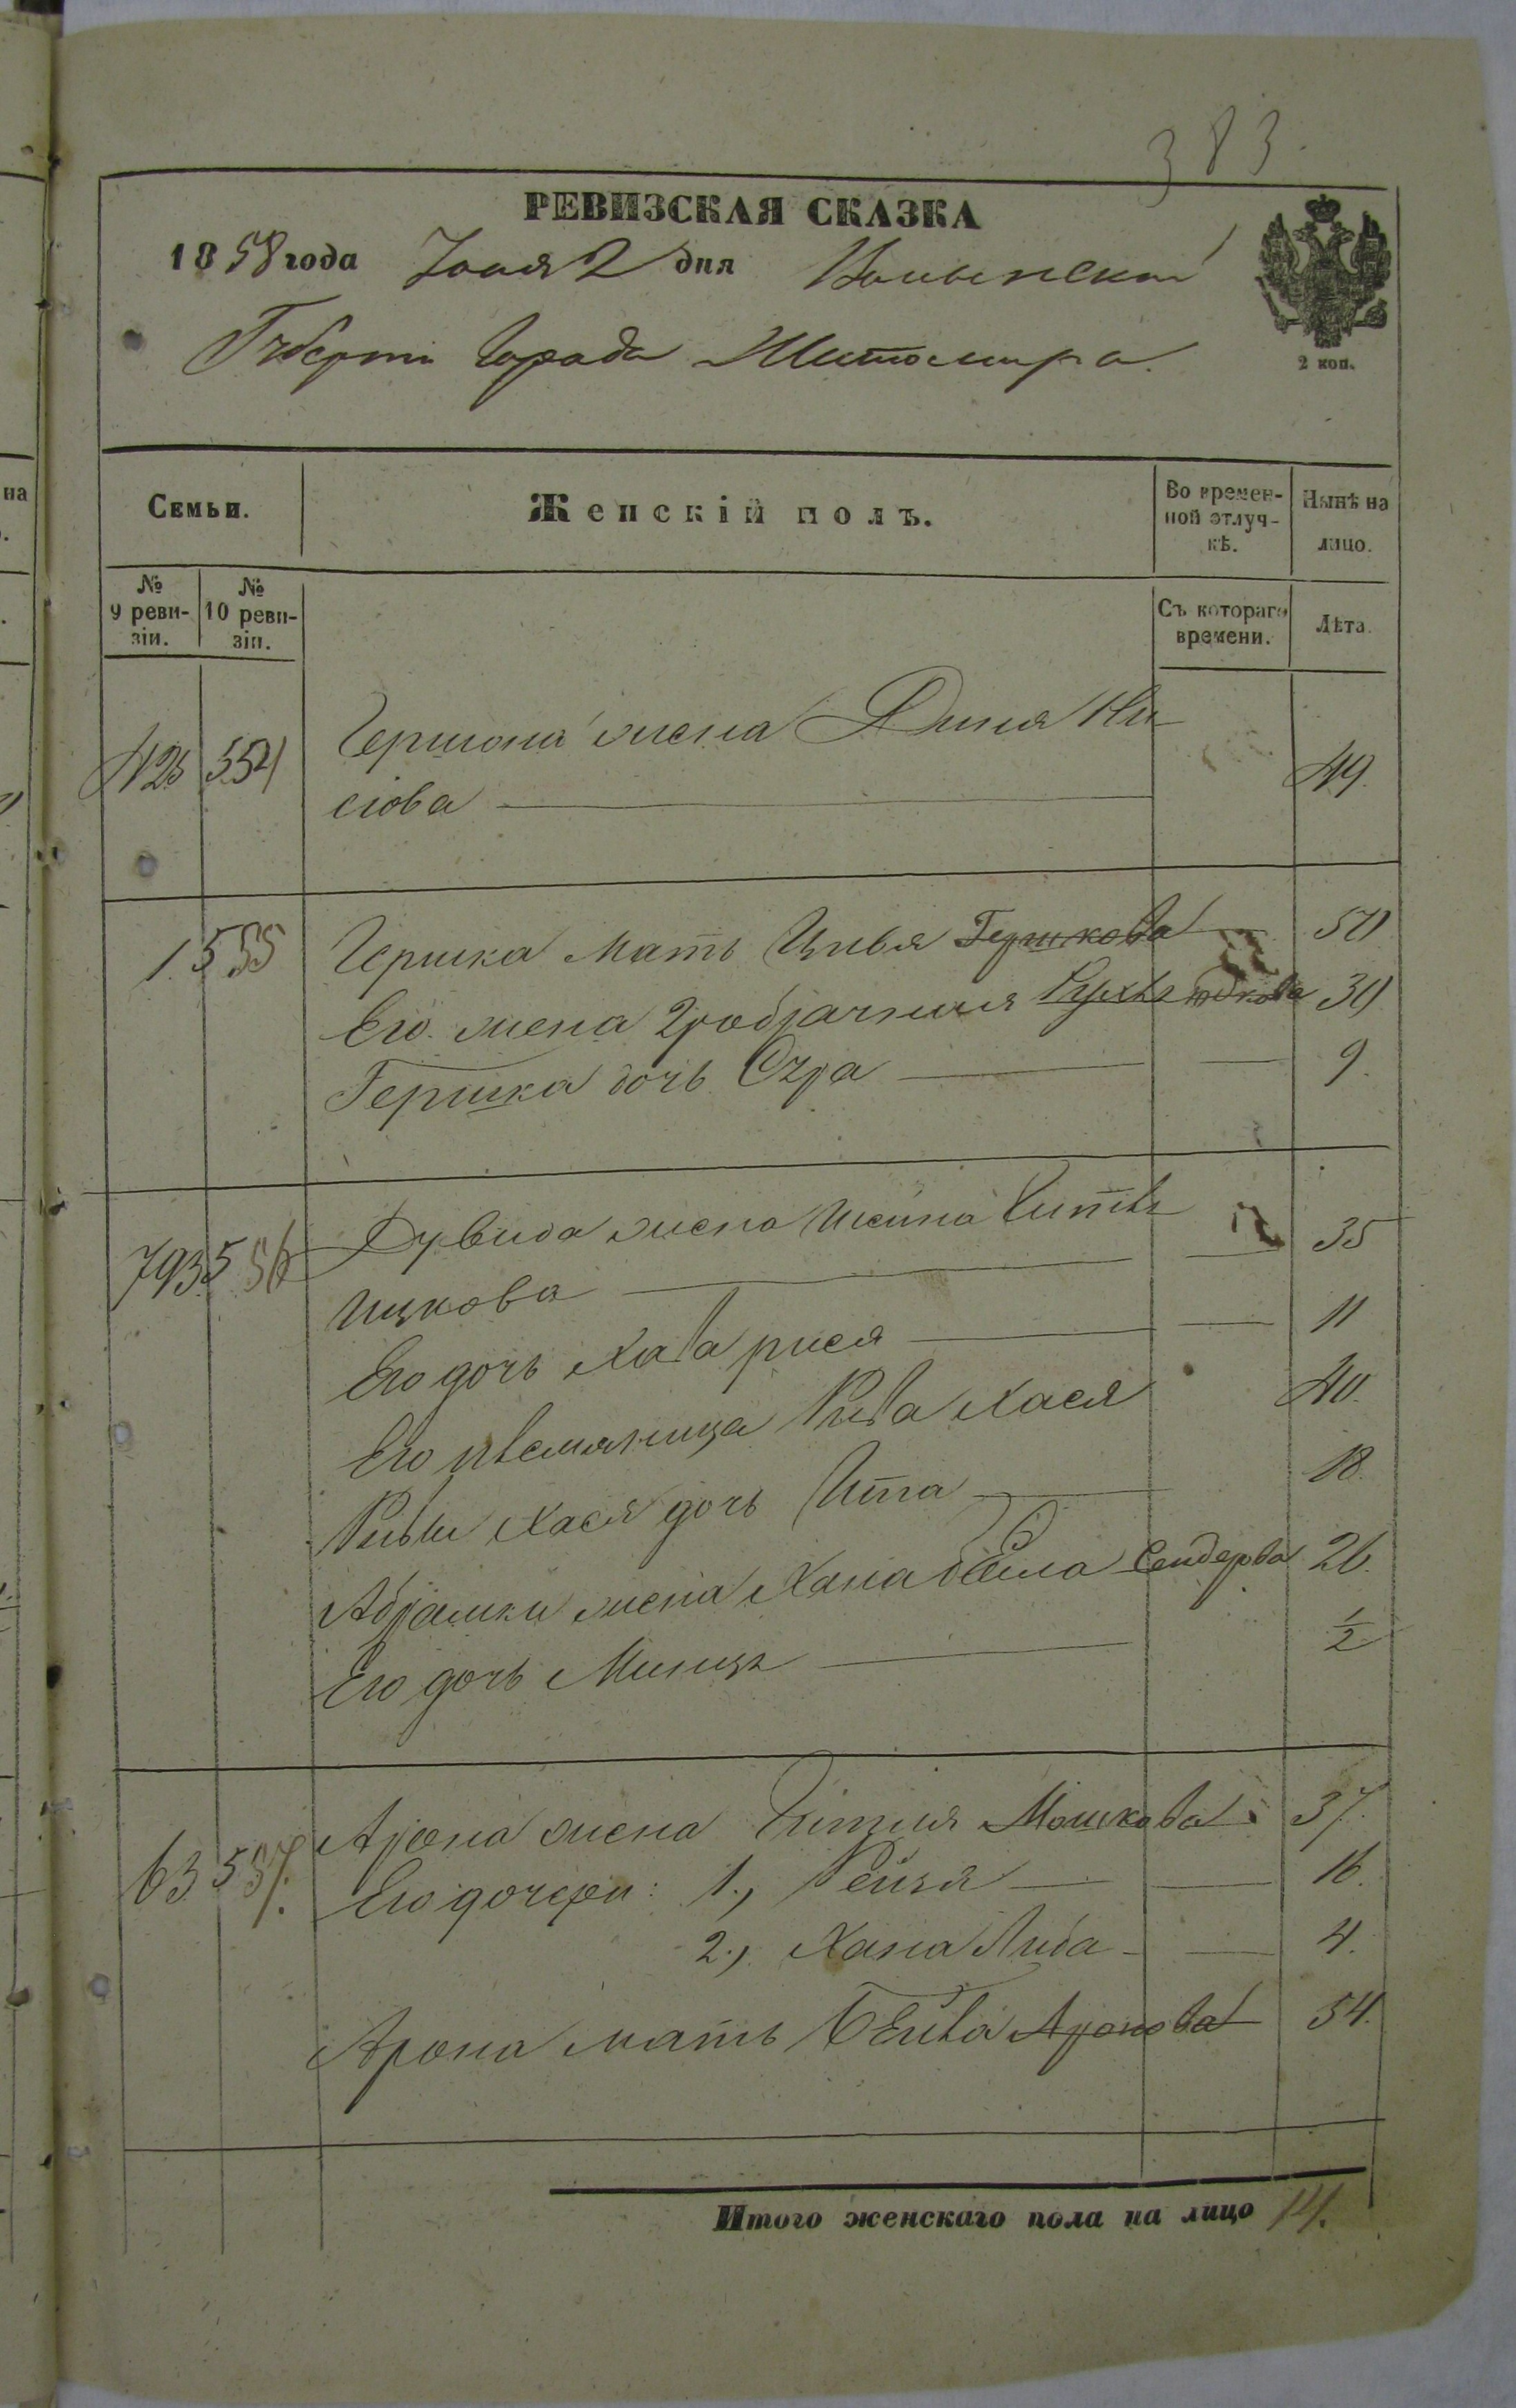 383.
РЕВИЗСКАЯ СКАЗКА
1858 года Іюня 2 дня Волынской
Губерніи Города Житомира.
2 коп.
на
Семьи. Женскій полъ. Во времен-ной отлуч-кѣ. Нынѣ на лицо.
№ 9 реви-зіи. № 10 реви-зіи. Съ котораго времени. Лѣта.
425 554 Гершона жена Диня Ки-
сіова 49.
1. 555 Гершка мать Цивья Гершкова 50
Его жена 2робрачная Рухля Юдкова 30
Гершка дочь Сура 9.
793. 556 Дувида жена Шейна
Ицкова 35
Его дочь Хава рися 11
Его племяница Рива Хася 40.
Ривы Хася дочь Ита 18.
Абрамки жена Хана бейла Сендерова 26.
Его дочь Минця 1/2
63 557. Арона жена Гитля Мошкова 37.
Его дочери: 1., Рейзя 16.
2., Хана Либа 4.
Арона мать Бейла Аронова 54.
Итого женскаго пола на лицо 14.